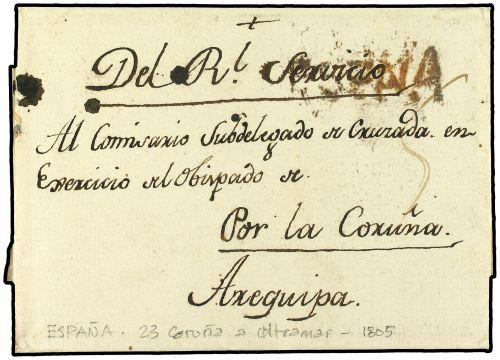 +
Del Rl. Servicio
Al Comisario Subdelegado de Cruzada en
Exercicio del Obispado de
Por la Coruña.
Arequipa.
ESPAÑA. 23 Coruña a Ultramar - 1805